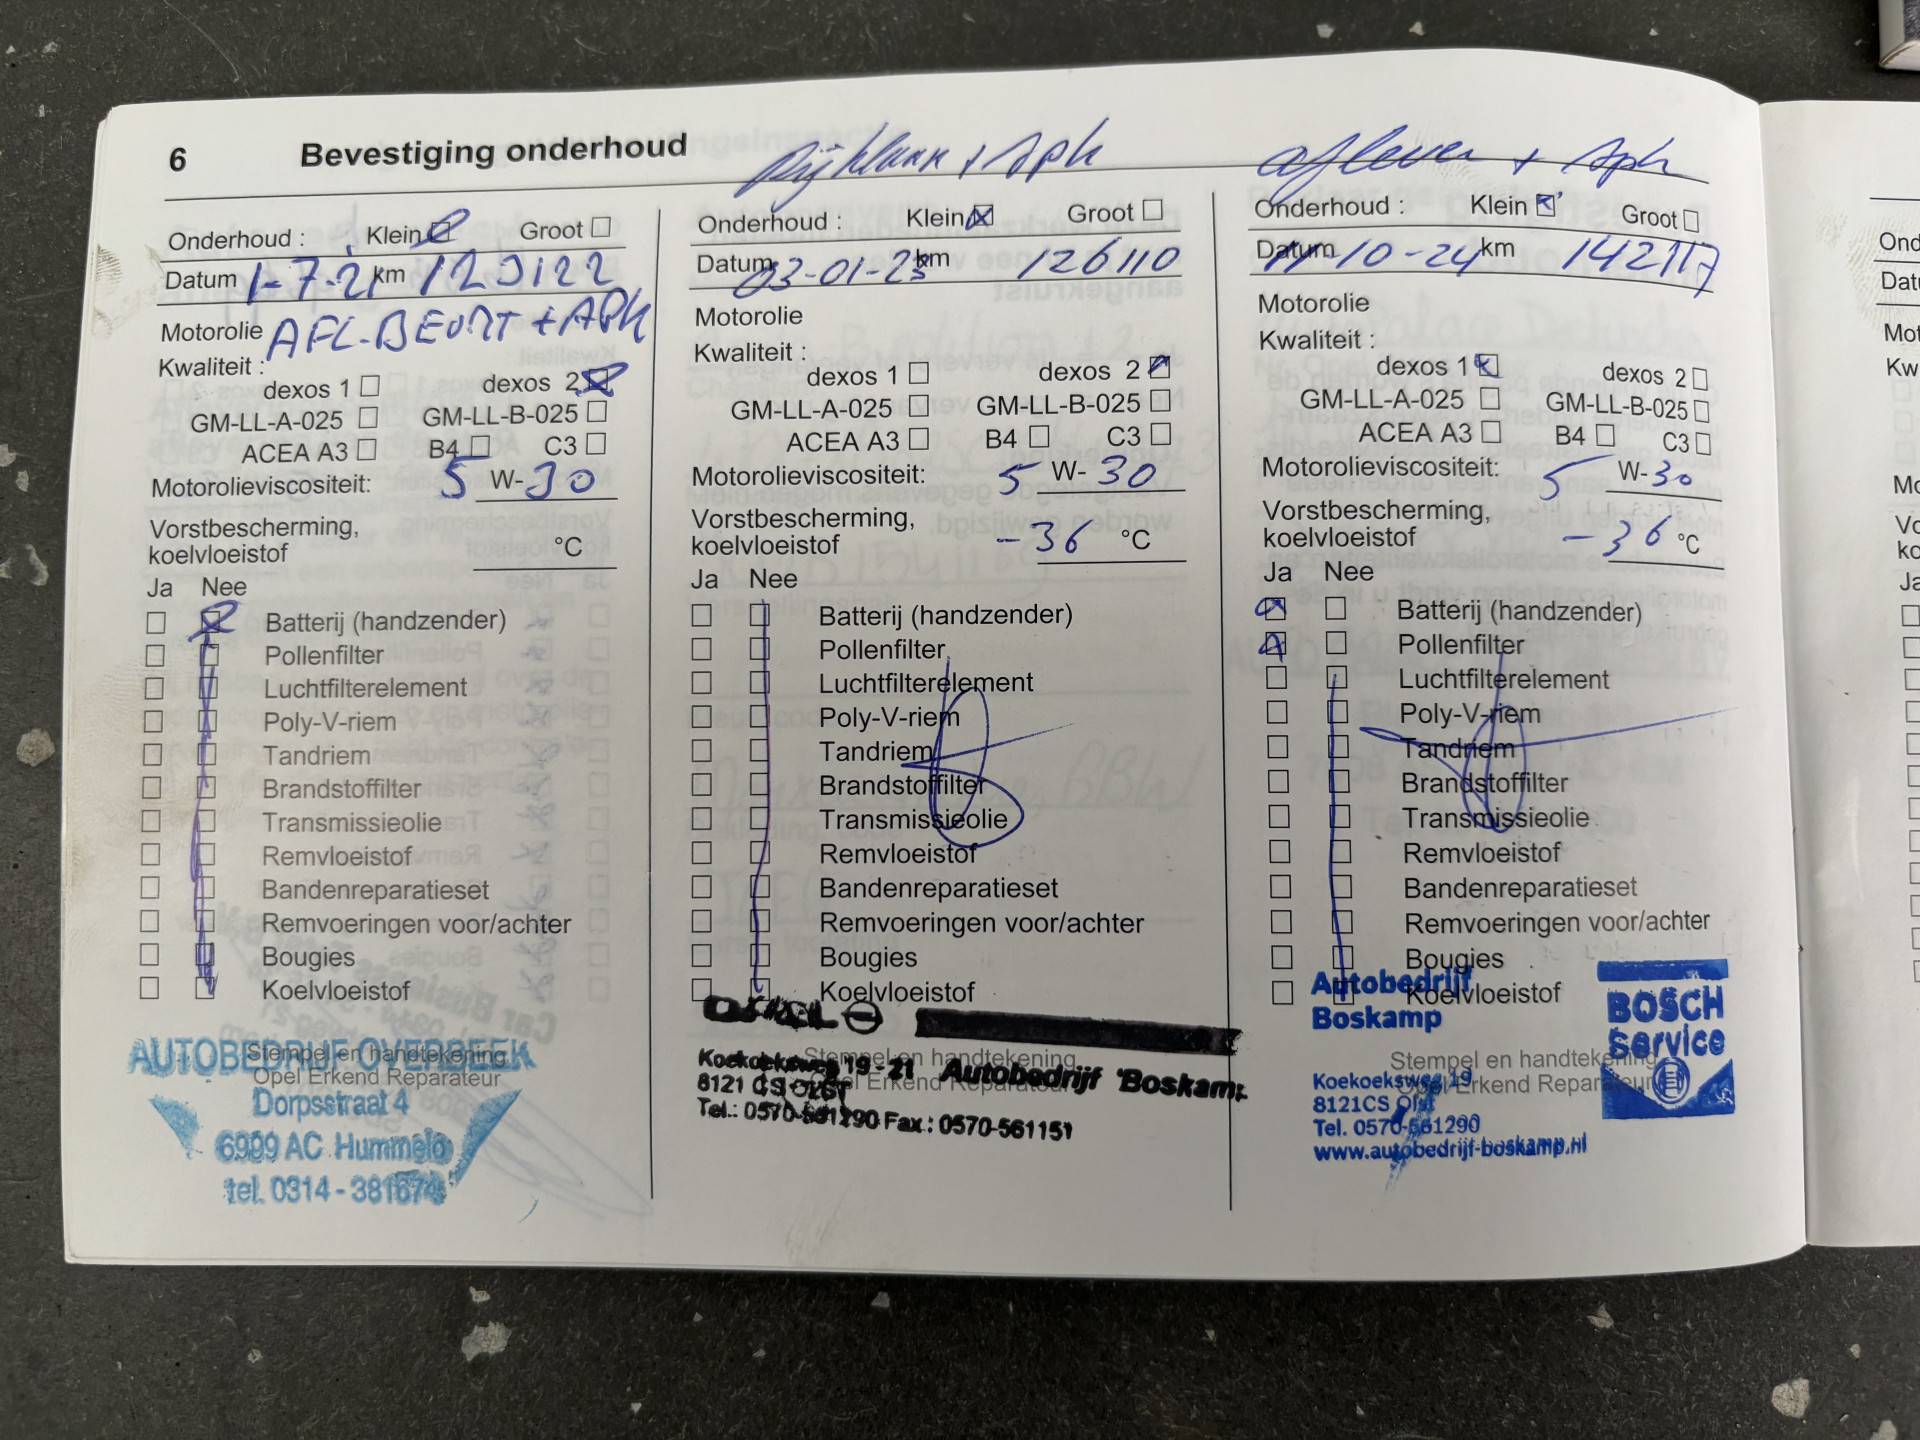 6 Bevestiging onderhoud
+ Aph
aflever + Aph
Onderhoud : Klein Groot
Datum 1-7-21 km 123122
Motorolie AFL-BEURT + APK
Kwaliteit :
dexos 1 dexos 2
GM-LL-A-025 GM-LL-B-025
ACEA A3 B4 C3
Motorolieviscositeit: 5 W-30
Vorstbescherming,
koelvloeistof °C
Ja Nee
Batterij (handzender)
Pollenfilter
Luchtfilterelement
Poly-V-riem
Tandriem
Brandstoffilter
Transmissieolie
Remvloeistof
Bandenreparatieset
Remvoeringen voor/achter
Bougies
Koelvloeistof
Stempel en handtekening
Opel Erkend Reparateur
AUTOBEDRIJF OVERBEEK
Dorpsstraat 4
6999 AC Hummelo
tel. 0314-381674
Onderhoud : Klein Groot
Datum 03-01-23 km 126110
Motorolie
Kwaliteit :
dexos 1 dexos 2
GM-LL-A-025 GM-LL-B-025
ACEA A3 B4 C3
Motorolieviscositeit: 5 W-30
Vorstbescherming,
koelvloeistof -36 °C
Ja Nee
Batterij (handzender)
Pollenfilter
Luchtfilterelement
Poly-V-riem
Tandriem
Brandstoffilter
Transmissieolie
Remvloeistof
Bandenreparatieset
Remvoeringen voor/achter
Bougies
Koelvloeistof
Stempel en handtekening
Opel Erkend Reparateur
Koekoeksweg 19-21 Autobedrijf 'Boskamp
8121 CS OLST
Tel.: 0570-561290 Fax: 0570-561151
Onderhoud : Klein Groot
Datum 11-10-24 km 142117
Motorolie
Kwaliteit :
dexos 1 dexos 2
GM-LL-A-025 GM-LL-B-025
ACEA A3 B4 C3
Motorolieviscositeit: 5 W-30
Vorstbescherming,
koelvloeistof -36 °C
Ja Nee
Batterij (handzender)
Pollenfilter
Luchtfilterelement
Poly-V-riem
Tandriem
Brandstoffilter
Transmissieolie
Remvloeistof
Bandenreparatieset
Remvoeringen voor/achter
Bougies
Koelvloeistof
Stempel en handtekening
Opel Erkend Reparateur
Autobedrijf
Boskamp
BOSCH
Service
Koekoeksweg 19
8121CS Olst
Tel. 0570-561290
www.autobedrijf-boskamp.nl